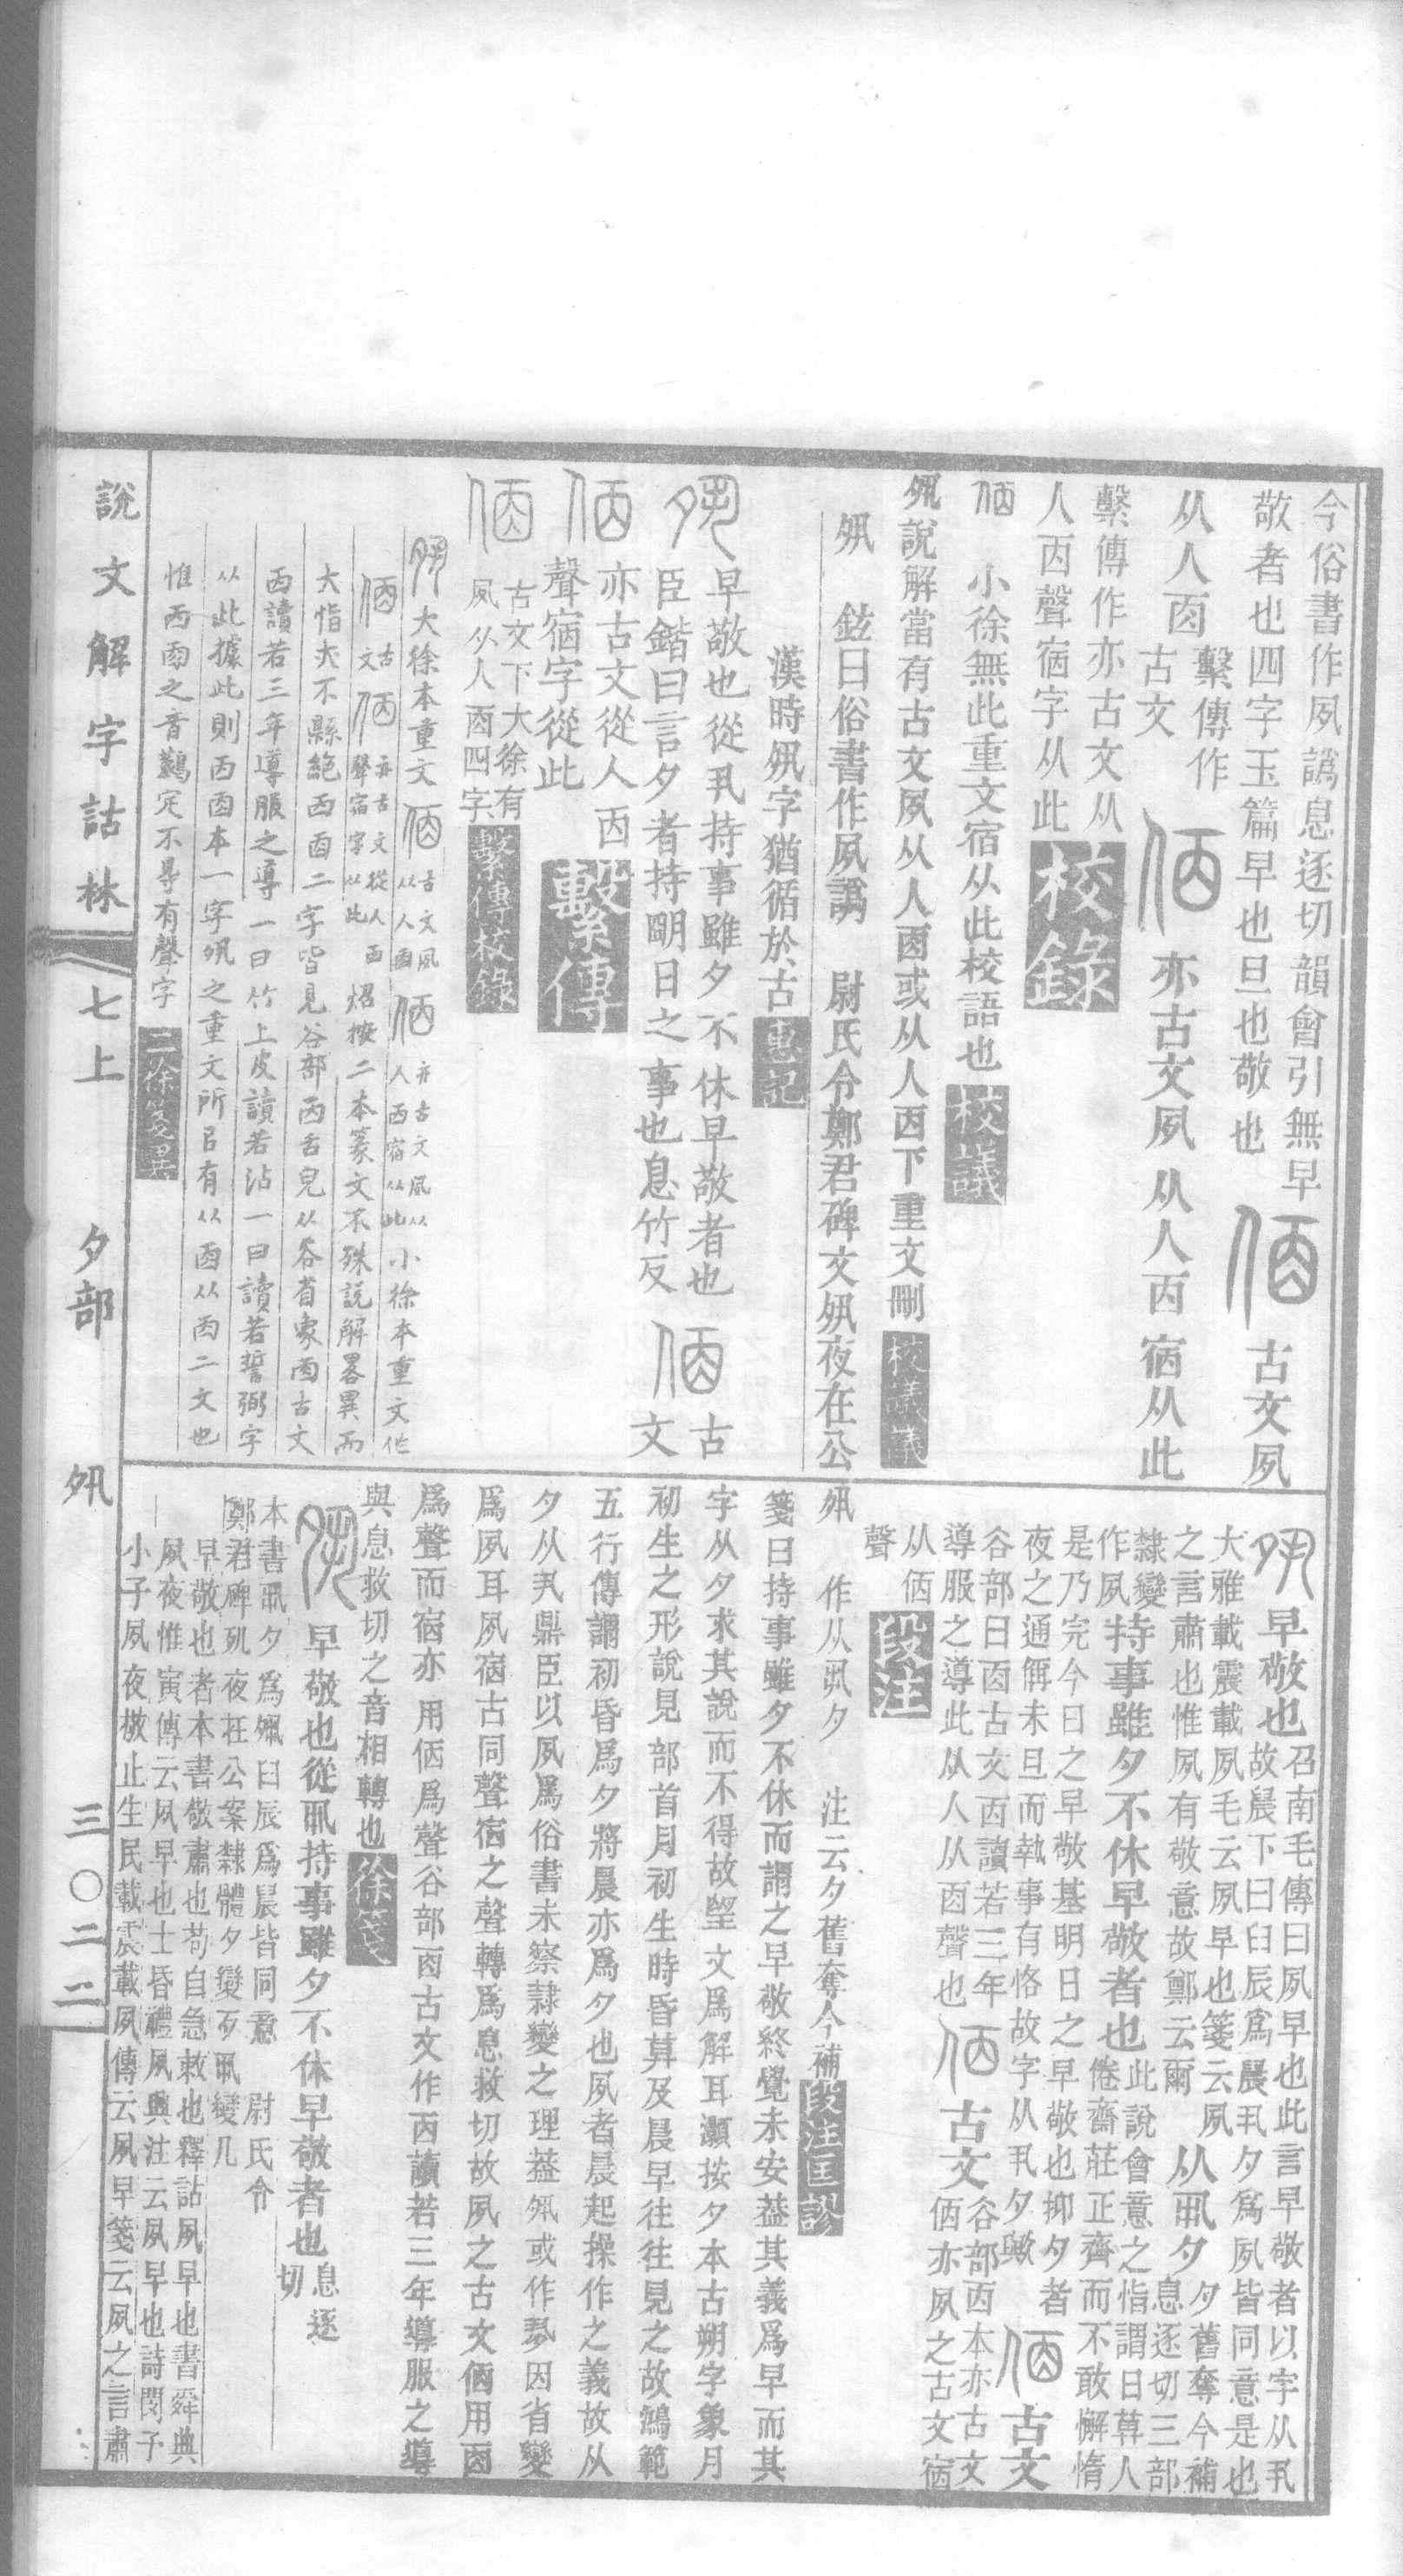 今俗書作夙譌息逐切韻會引無早
敬者也四字玉篇早也旦也敬也
𠈇古文夙
从人㐁繫傳作古文
㑉亦古文夙从人㐁宿从此
繫傳作亦古文从
人㐁聲宿字从此
校錄
㑉小徐無此重文宿从此校語也
校議
夙說解當有古文夙从人㐁或从人㐁下重文刪
校議議
夙鉉曰俗書作夙譌
尉氏令鄭君碑文夙夜在公
漢時夙字猶循於古
惠記
早敬也從丮持事雖夕不休早敬者也
臣鍇曰言夕者持朙日之事也息竹反
古文
亦古文從人㐁
聲宿字從此
繫傳
古文下大徐有
夙从人㐁四字
繫傳校錄
大徐本重文
古文夙从人㐁
亦古文夙从人㐁宿从此
小徐本重文作
古文
亦古文從人㐁聲宿字從此
炤按二本篆文不殊說解畧異而
大恉大不縣絕㐁㐁二字皆見谷部㐁舌皃从谷省象㐁古文
㐁讀若三年導服之導一曰竹上皮讀若沾一曰讀若誓弼字
从此據此則㐁㐁本一字夙之重文所㠯有从㐁从㐁二文也
惟㐁㐁之音鷬定不㝵有聲字
二徐箋異
說文解字詁林
七上
夕部
夙
三〇二二
早敬也
召南毛傳曰夙早也此言早敬者以字从丮
故晨下曰臼辰爲晨丮夕爲夙皆同意是也
大雅載震載夙毛云夙早也箋云夙
之言肅也惟夙有敬意故鄭云爾
从丮夕
夕舊奪今補
息逐切三部
隸變
作夙
持事雖夕不休早敬者也
此說會意之恉謂日莫人
倦齋莊正齊而不敢懈惰
是乃完今日之早敬基明日之早敬也抑夕者
夜之通偁未旦而執事有恪故字从丮夕歟
古文
谷部曰㐁古文㐁讀若三年
導服之導此从人从㐁聲也
古文
谷部㐁本亦古文
㑉亦夙之古文宿
从㑉
聲
段注
夙作从丮夕
注云夕舊奪今補
段注匡謬
箋曰持事雖夕不休而謂之早敬終覺未安葢其義爲早而其
字从夕求其說而不得故望文爲解耳灝按夕本古朔字象月
初生之形說見部首月初生時昏莫及晨早往往見之故鴻範
五行傳謂初昏爲夕將晨亦爲夕也夙者晨起操作之義故从
夕从丮鼎臣以夙爲俗書未察隸變之理葢夙或作𡖊因省變
爲夙耳夙宿古同聲宿之聲轉爲息救切故夙之古文㑉用㐁
爲聲而宿亦用㑉爲聲谷部㐁古文作㐁讀若三年導服之導
與息救切之音相轉也
徐箋
早敬也從丮持事雖夕不休早敬者也
息逐
切
本書丮夕爲夙臼辰爲晨皆同意
尉氏令
鄭君碑夙夜在公案隸體夕變歹丮變几
早敬也者本書敬肅也茍自急敕也釋詁夙早也書舜典
夙夜惟寅傳云夙早也士昏禮夙興注云夙早也詩閔予
小子夙夜敬止生民載震載夙傳云夙早箋云夙之言肅